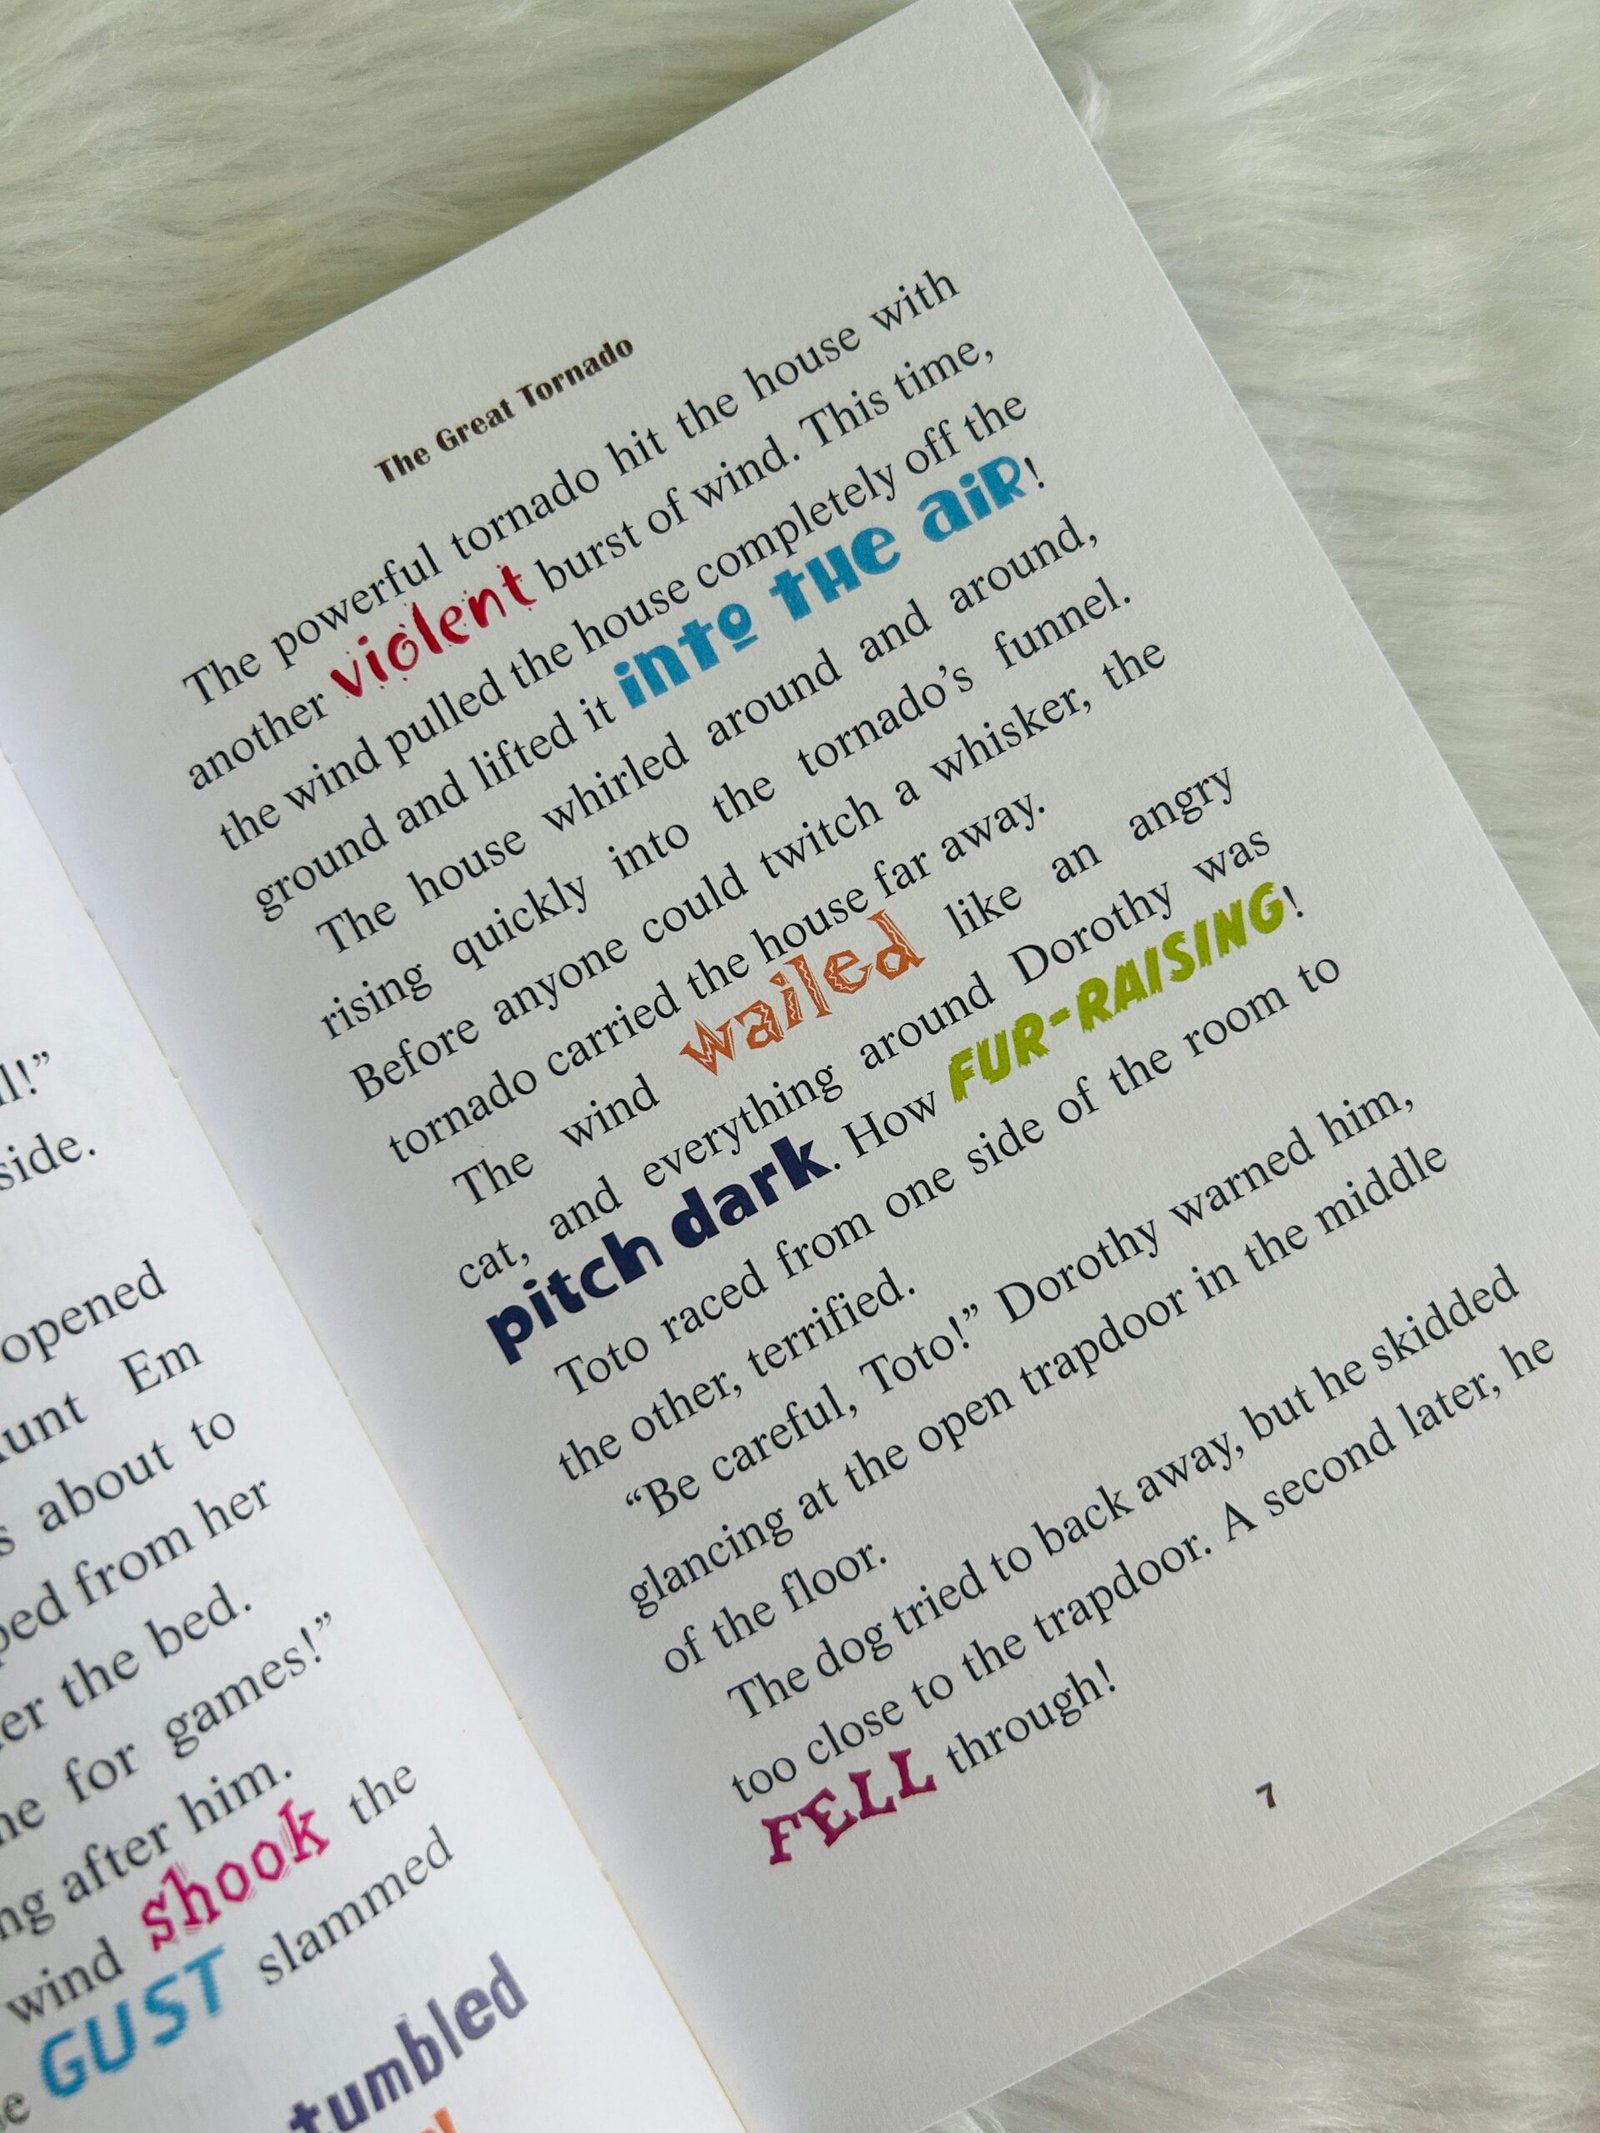 ll!”
side.
opened
Aunt Em
s about to
ped from her
er the bed.
me for games!”
ng after him.
wind shook the
GUST slammed
tumbled
The Great Tornado
The powerful tornado hit the house with
another violent burst of wind. This time,
the wind pulled the house completely off the
ground and lifted it into THE aiR!
The house whirled around and around,
rising quickly into the tornado’s funnel.
Before anyone could twitch a whisker, the
tornado carried the house far away.
The wind wailed like an angry
cat, and everything around Dorothy was
pitch dark. How FUR-RAISING!
Toto raced from one side of the room to
the other, terrified.
“Be careful, Toto!” Dorothy warned him,
glancing at the open trapdoor in the middle
of the floor.
The dog tried to back away, but he skidded
too close to the trapdoor. A second later, he
FELL through!
7